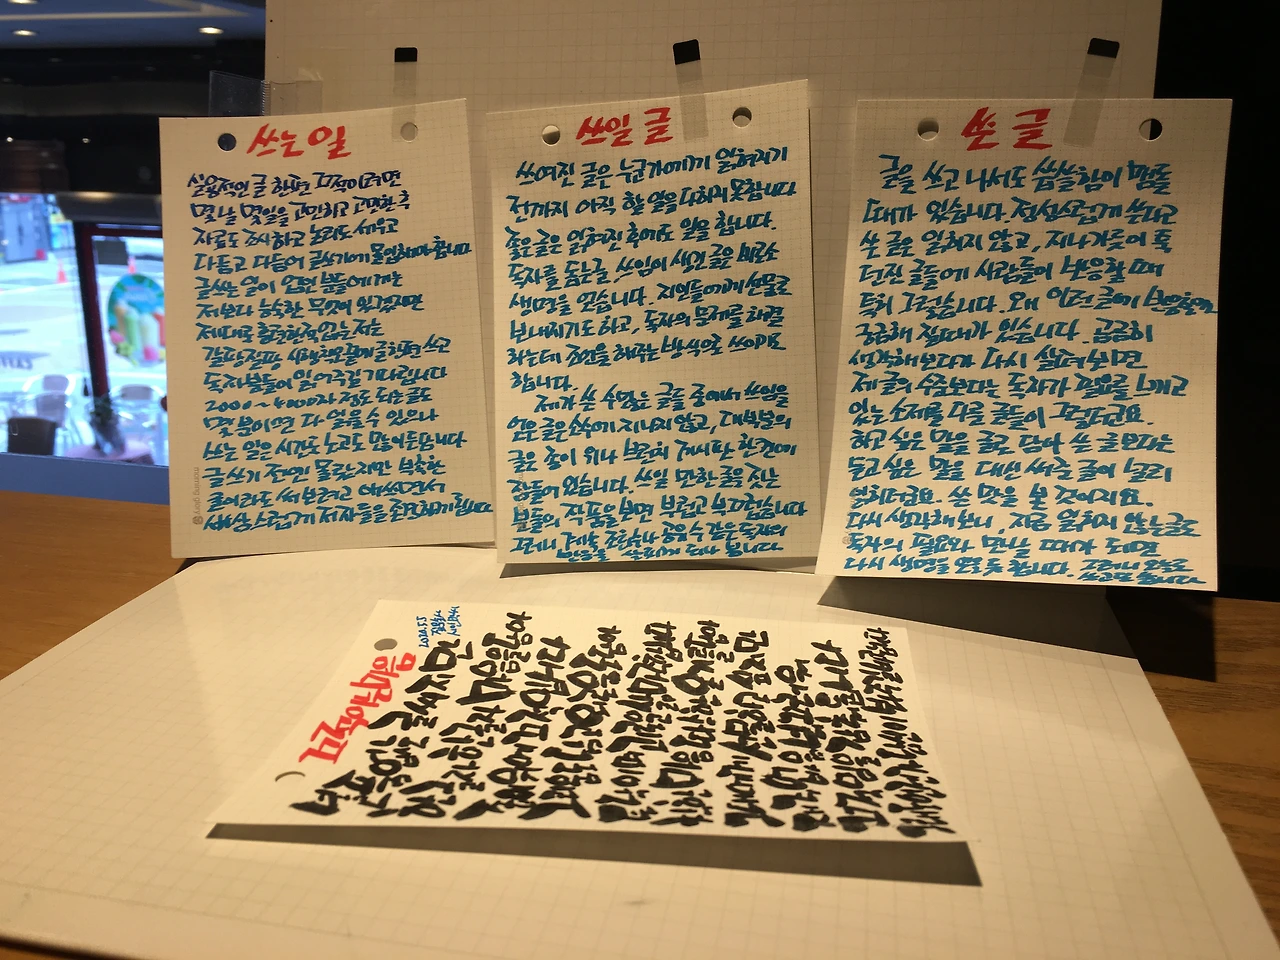 쓰는 일
실용적인 글 한편 끄적이려면
몇 날 몇일을 고민하고 고민한 후
자료도 조사하고 논리도 세우고
다듬고 다듬어 글쓰기에 몰입해야 합니다
글쓰는 일이 오랜 분들에게는
저보다 능숙한 무엇이 있겠지만
제대로 출간한적 없는 저는
갈팡질팡 시행착오에 한편 쓰고
독자분들이 읽어주길 기다립니다
2000~4000자 정도 되는 글도
몇 분이면 다 읽을 수 있으나
쓰는 일은 시간도 노고도 많이 듭니다
글쓰기 전엔 몰랐지만 부족한
글이라도 써보려고 애쓰면서
새삼스럽게 저자들을 존경하게 됩니다
morning glory
쓰일 글
쓰여진 글은 누군가에게 읽혀지기
전까지 아직 할 일을 다하지 못합니다
좋은 글은 읽혀진 후에도 일을 합니다.
독자를 돕는 글, 쓰임이 생긴 글은 비로소
생명을 얻습니다. 지인들에게 선물로
보내지기도 하고, 독자의 문제를 해결
하는데 조언을 해주는 방식으로 쓰이기도
합니다.
제가 쓴 수많은 글들 중에서 쓰임을
얻은 글은 소수에 지나지 않고, 대부분의
글은 종이 위나 브런치 게시판 한켠에
잠들어 있습니다. 쓰일 만한 글을 짓는
분들의 작품을 보면 부럽고 부끄럽습니다
그러니 계속 조금이나 공유 수 같은 독자의
반응을 살피게 되나 봅니다
쓴 글
글을 쓰고 나서도 씁쓸함이 맴돌
때가 있습니다. 정성스럽게 쓴다고
쓴 글은 읽히지 않고, 지나가듯이 툭
던진 글들에 사람들이 반응할 때
특히 그렇습니다. 왜 이런 글에 반응할까
궁금해 질 때가 있습니다. 곰곰히
생각해보다가 다시 살펴보면
제 글의 수준보다는 독자가 필요를 느끼고
있는 소재를 다룬 글들이 그렇더군요.
하고 싶은 말을 글로 담아 쓴 글보다는
듣고 싶은 말을 대신 써준 글이 널리
읽히더군요. 쓴 맛을 본 것이지요.
다시 생각해 보니, 지금 읽히지 않는 글도
독자의 필요와 만날 때가 되면
다시 생명을 얻을 듯 합니다. 그러니 오늘도
쓰고 또 씁니다
끄적이는 마음
2020.5.5
글씨지만
한 글자 한 글자 마음을 담아
끄적입니다
담아
마음
선물하고 싶지만